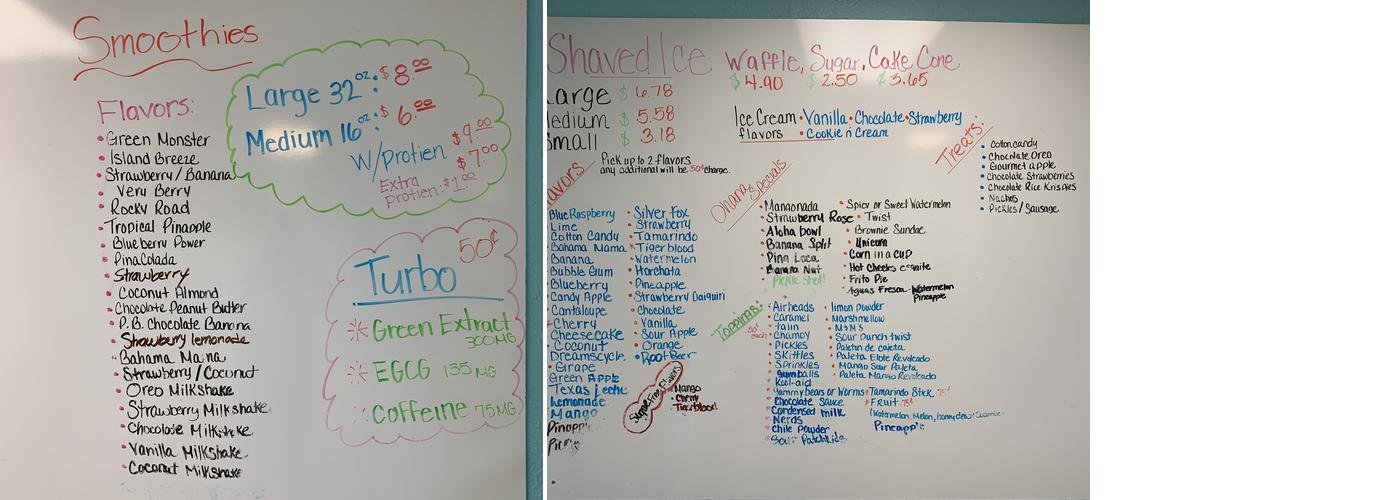 Smoothies
Large 32oz: $8.00
Medium 16oz: $6.00
W/Protien $9.00
$7.00
Extra
protien: $1.00
Flavors:
• Green Monster
• Island Breeze
• Strawberry/Banana
• Very Berry
• Rocky Road
• Tropical Pinapple
• Blueberry Power
• Pina Colada
• Strawberry
• Coconut Almond
• Chocolate Peanut Butter
• P.B. Chocolate Banana
• Strawberry lemonade
• Bahama Mama
• Strawberry/Coconut
• Oreo Milkshake
• Strawberry Milkshake
• Chocolate Milkshake
• Vanilla Milkshake
• Coconut Milkshake
50¢
Turbo
Green Extract
300MG
EGCG 135MG
Caffeine 75MG
Shaved Ice
Large $6.78
Medium $5.58
Small $3.18
Waffle, Sugar, Cake Cone
$4.90 $2.50 $3.65
Ice Cream • Vanilla • Chocolate • Strawberry
flavors • Cookie n Cream
Pick up to 2 flavors
any additional will be .50¢ charge.
Flavors
Blue Raspberry
Lime
Cotton Candy
Bahama Mama
Banana
Bubble Gum
Blueberry
Candy Apple
Cantaloupe
Cherry
Cheesecake
Coconut
Dreamscycle
Grape
Green Apple
Texas Leche
Lemonade
Mango
• Silver Fox
• Strawberry
• Tamarindo
• Tigerblood
• Watermelon
• Horchata
• Pineapple
• Strawberry Daiquiri
• Chocolate
• Vanilla
• Sour Apple
• Orange
• Root Beer
Sugar Free Flavors
• Mango
• Cherry
• Tigerblood!
Ohana Specials
• Mangonada
• Strawberry Rose
• Aloha bowl
• Banana Split
• Pina Loca
• Banana Nut
• Pickle Shot!
• Spicy or Sweet Watermelon
• Twist
• Brownie Sundae
• Unicorn
• Corn in a cup
• Hot Cheetos
• Frito Pie
• Aguas Frescas - Watermelon
Pineapple
Treats:
• Cotton candy
• Chocolate Oreo
• Gourmet apple
• Chocolate Strawberries
• Chocolate Rice Krispies
• Nachos
• Pickles/Sausage
Toppings:
.50¢
each
• Airheads
• Caramel
• Tajin
• Chamoy
• Pickles
• Skittles
• Sprinkles
• Gumballs
• Kool-aid
• Gummy bears or Worms
• Chocolate Sauce
• Condensed milk
• Nerds
• Chile Powder
• Sour Patch Kids
• limon Powder
• Marshmellow
• M&M's
• Sour Punch twist
• Paleta Elote Revolcado
• Mango Sour Paleta
• Paleta Mango Revolcado
• Tamarindo Stick 75¢
• FRUIT 75¢
(Watermelon, Melon, honeydew, Cucumber
Pineapple